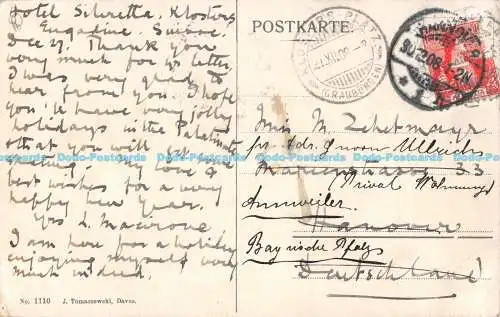 Hotel Silvretta. Klosters
Engadine, Suisse.
Dec 27. Thank you
very much for yr letter,
I was very glad to
hear from you. I hope
you'll have very jolly
holidays in the Palatinate
that you will get
best wishes for a very
happy New Year.
Yrs L. Macirone
I am here for a holiday
enjoying myself very
much indeed.
No. 1110 J. Tomaszewski, Davos.
POSTKARTE.
KLOSTERS-PLATZ
(GRAUBÜNDEN)
HANNOVER
30.12.08
Miss M. Zehetmayr
pr. adr. Frau Ullrichs
33
(Privat Wohnung)
Annweiler
Hanover
Bayrische Pfalz
Deutschland
Dodo-Postcards Dodo-Postcards Dodo-Postcards Dodo-Postcards